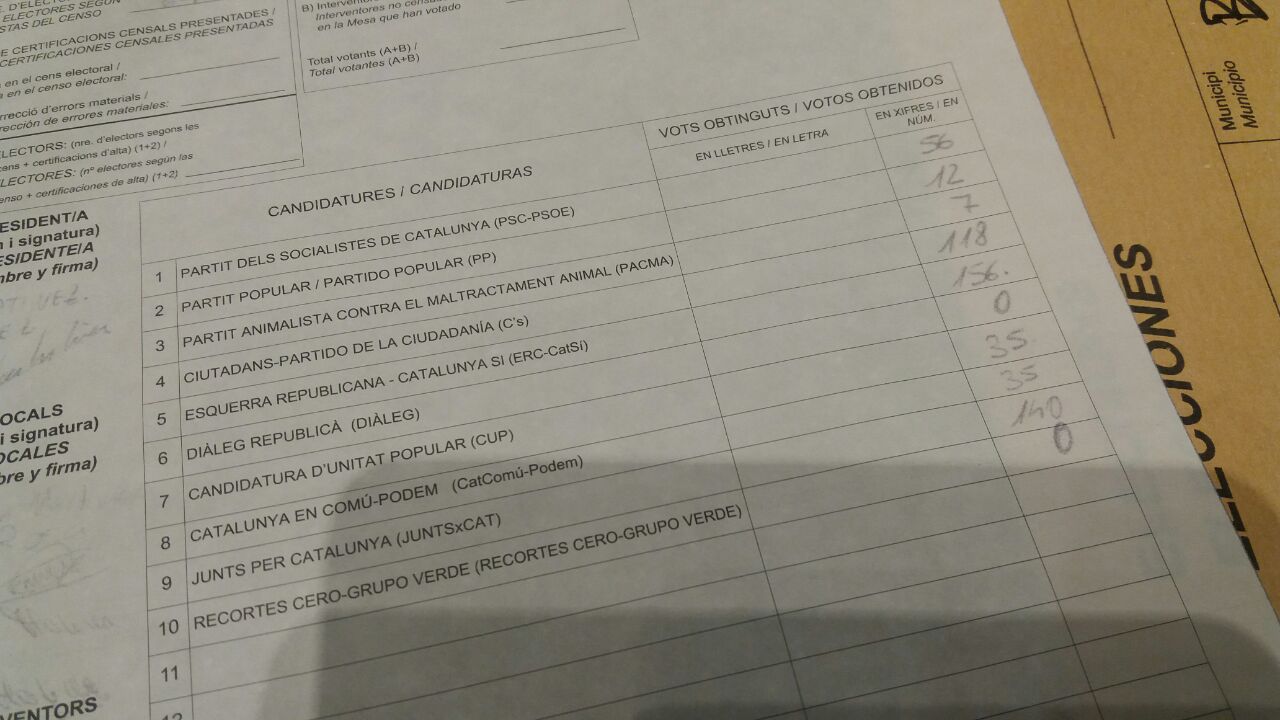 . D'ELECTO
ELECTORES SEGÚN
STAS DEL CENSO
E CERTIFICACIONS CENSALS PRESENTADES /
CERTIFICACIONES CENSALES PRESENTADAS
en el cens electoral /
a en el censo electoral:
rrecció d'errors materials /
rección de errores materiales:
LECTORS: (nre. d'electors segons les
ans + certificacions d'alta) (1+2) /
LECTORES: (nº electores según las
enso + certificaciones de alta) (1+2)
B) Interventor
Interventores no censa
en la Mesa que han votado
Total votants (A+B) /
Total votantes (A+B)
ESIDENT/A
i signatura)
ESIDENTE/A
mbre y firma)
OCALS
i signatura)
OCALES
bre y firma)
VENTORS
CANDIDATURES / CANDIDATURAS
VOTS OBTINGUTS / VOTOS OBTENIDOS
EN LLETRES / EN LETRA
EN XIFRES / EN
NÚM.
1 PARTIT DELS SOCIALISTES DE CATALUNYA (PSC-PSOE) 56
2 PARTIT POPULAR / PARTIDO POPULAR (PP) 12
3 PARTIT ANIMALISTA CONTRA EL MALTRACTAMENT ANIMAL (PACMA) 7
4 CIUTADANS-PARTIDO DE LA CIUDADANÍA (C's) 118
5 ESQUERRA REPUBLICANA - CATALUNYA SI (ERC-CatSí) 156.
6 DIÀLEG REPUBLICÀ (DIÀLEG) 0
7 CANDIDATURA D'UNITAT POPULAR (CUP) 35.
8 CATALUNYA EN COMÚ-PODEM (CatComú-Podem) 35
9 JUNTS PER CATALUNYA (JUNTSxCAT) 140
10 RECORTES CERO-GRUPO VERDE (RECORTES CERO-GRUPO VERDE) 0
11
12
Municipi
Municipio
ELECCIONES